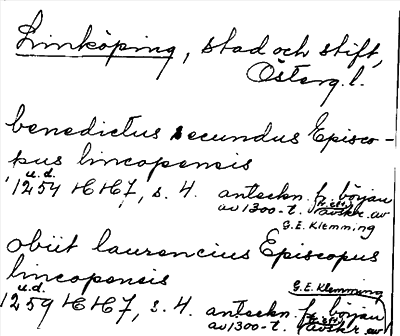 Linköping, stad och stift,
Österg.l.
benedictus secundus Episco-
pus lincopensis
u.d.
1254 HH7, s. 4. anteckn. fr. början
av 1300-t. avskr. av
G.E. Klemming
obiit laurencius Episcopus
lincopensis
u.d. G.E. Klemming
1259 HH7, s. 4. anteckn. fr. början
av 1300-t. avskr. av